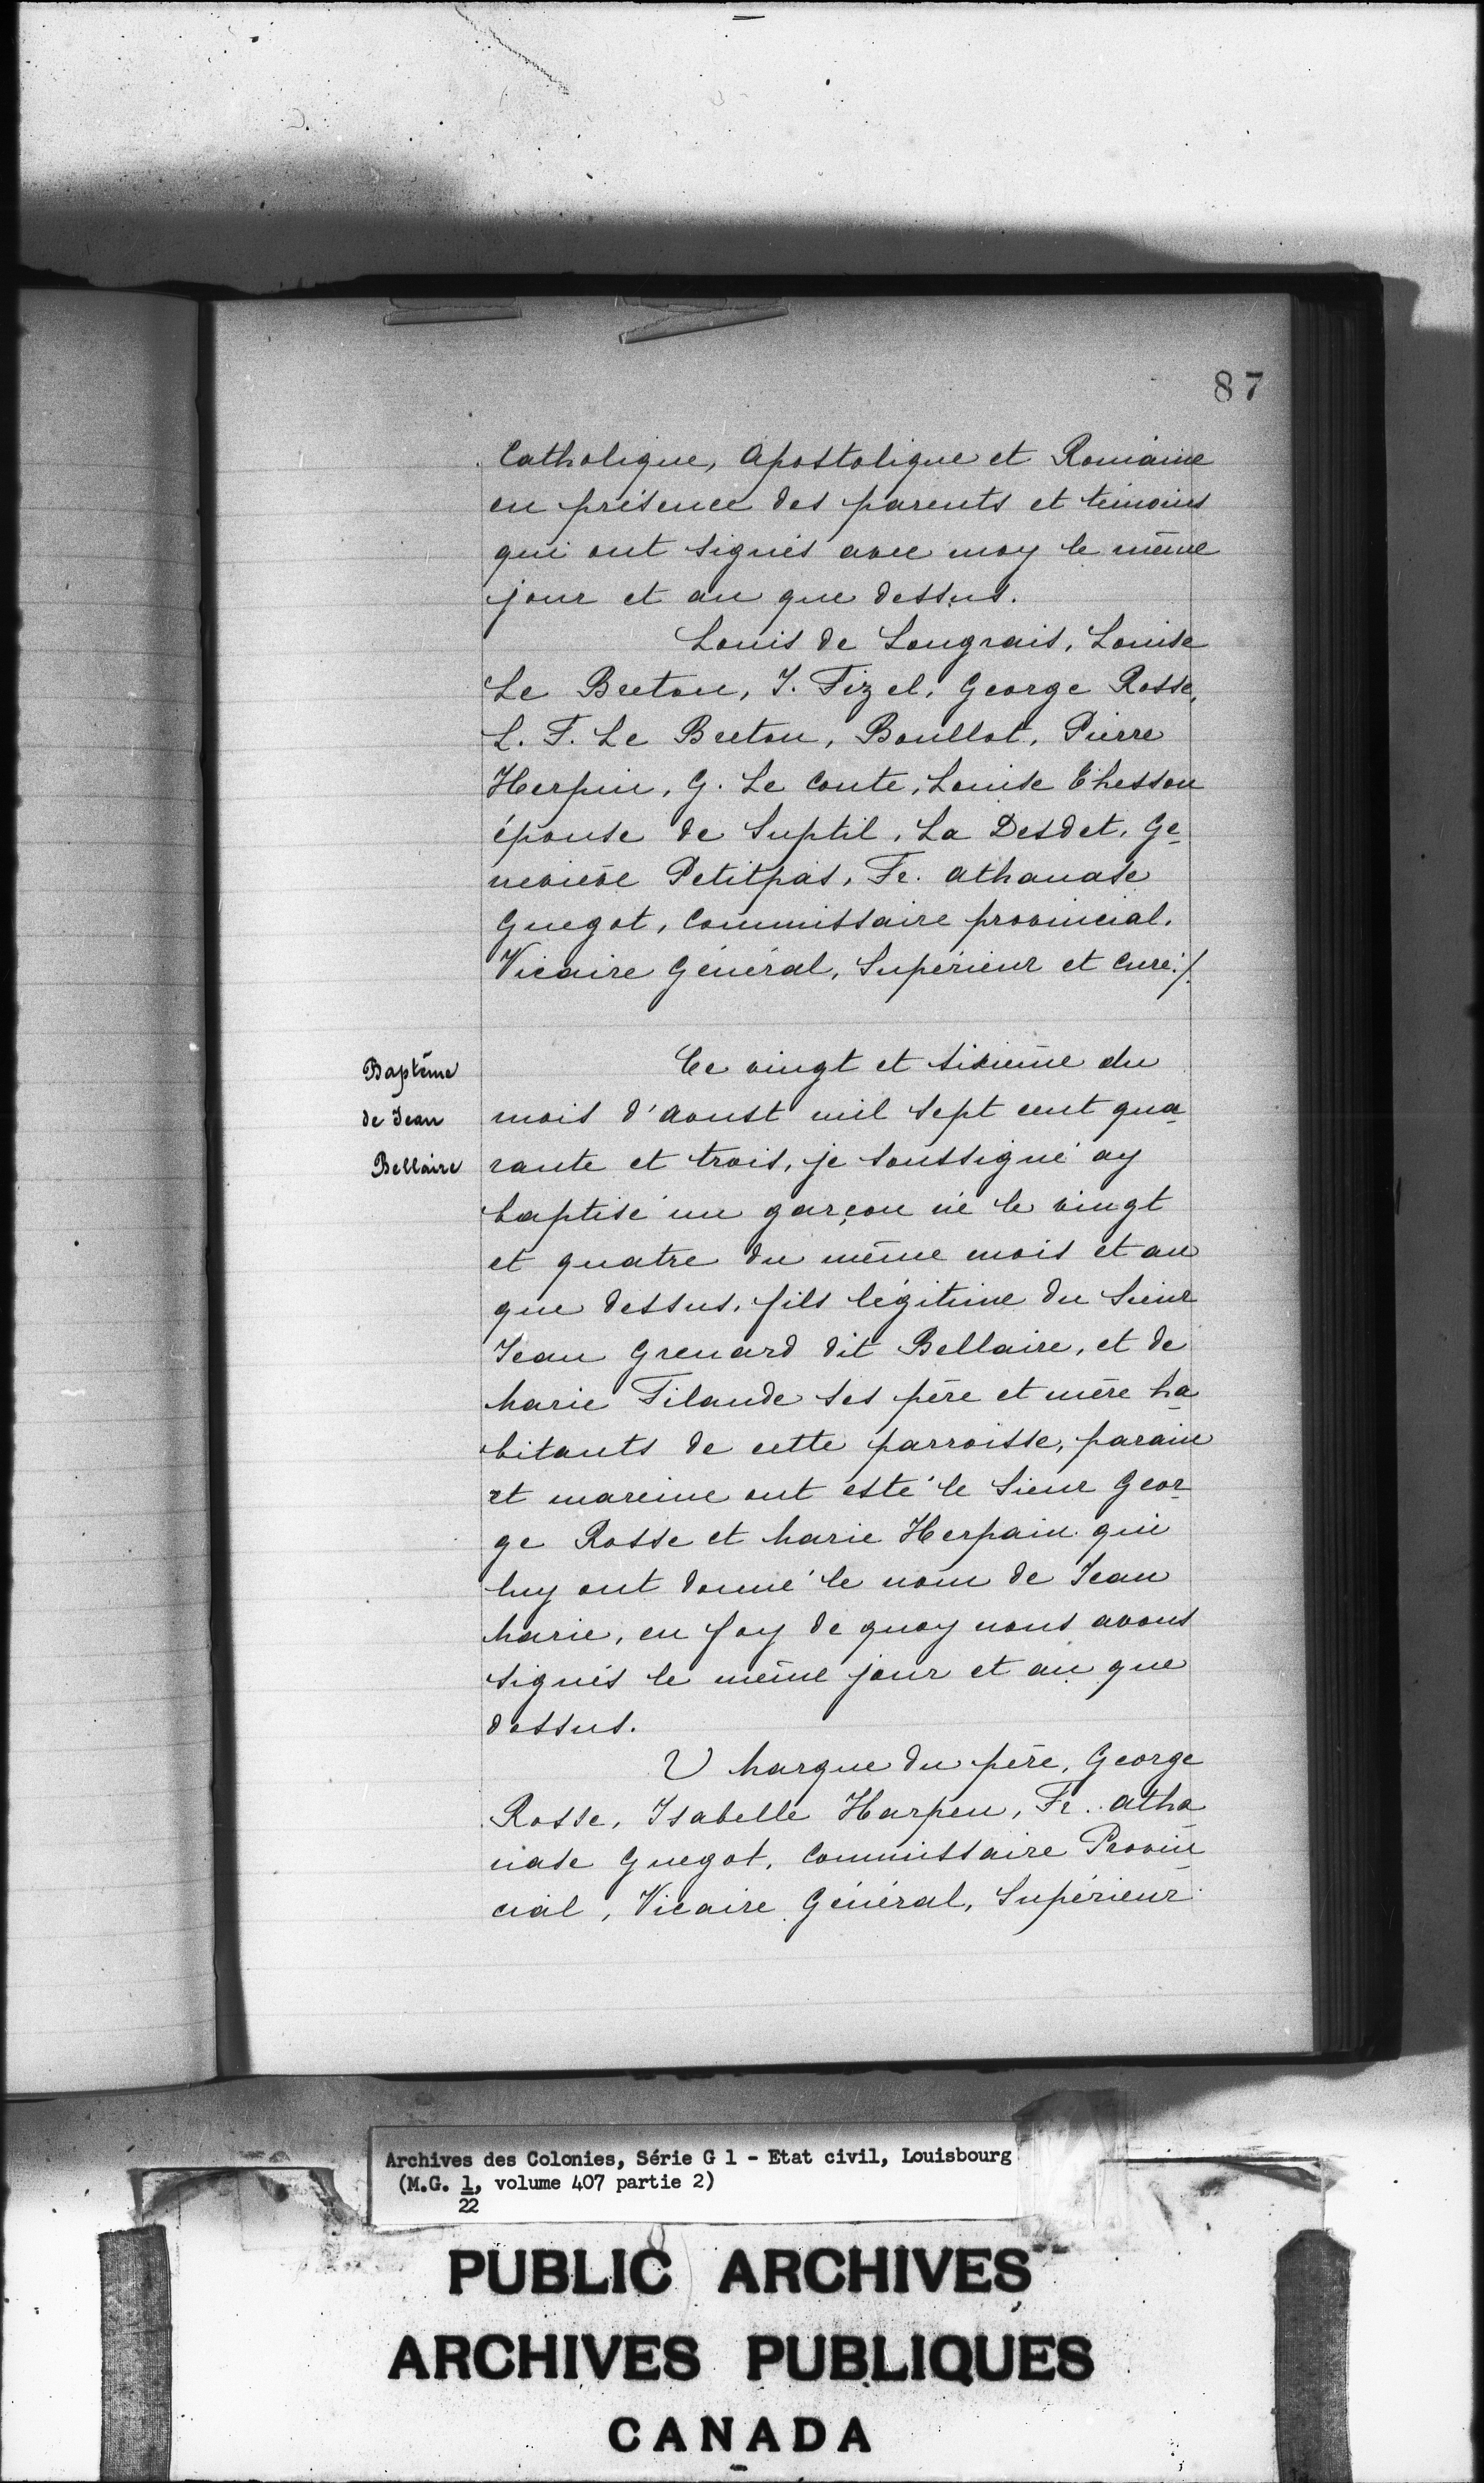 87
Catholique, Apostolique et Romaine
en présence des parents et témoins
qui ont signés avec moy le même
jour et an que dessus.
Louis de Longrais, Louise
Le Breton, J. Fizel, George Rosse,
L. F. Le Breton, Boullot, Pierre
Herpin, G. Le Conte, Louise Chesson
épouse de Suptil, La Desdet, Ge-
neviève Petitpas, Fr. Athanase
Guegot, Commissaire provincial,
Vicaire Général, Supérieur et Curé./.
Baptême
de Jean
Bellaire
Ce vingt et sixième du
mois d'Aoust mil sept cent qua-
rante et trois, je soussigné ay
baptisé un garçon né le vingt
et quatre du même mois et an
que dessus, fils légitime du Sieur
Jean Grenard dit Bellaire, et de
Marie Filande ses père et mère ha-
bitants de cette parroisse, parain
et mareine ont esté le Sieur Geor-
ge Rosse et Marie Herpain qui
luy ont donné le nom de Jean
Marie, en foy de quoy nous avons
signés le même jour et an que
dessus.
V Marque du père, George
Rosse, Isabelle Harpen, Fr. Atha-
nase Guegot, Commissaire Provin-
cial, Vicaire Général, Supérieur
Archives des Colonies, Série G 1 - Etat civil, Louisbourg
(M.G. 1, volume 407 partie 2)
22
PUBLIC ARCHIVES
ARCHIVES PUBLIQUES
CANADA